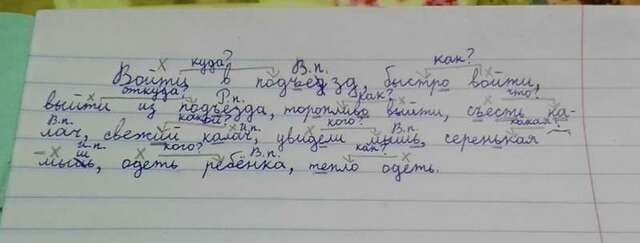 куда? В.п. как?
Войти в подъезд, быстро войти,
откуда? Р.п. как? что?
выйти из подъезда, торопливо выйти, съесть ка-
В.п. какой? И.п. кого? В.п. какая?
лач, свежий калач, увидели мышь, серенькая
И.п. кого? В.п. как?
мышь, одеть ребёнка, тепло одеть.